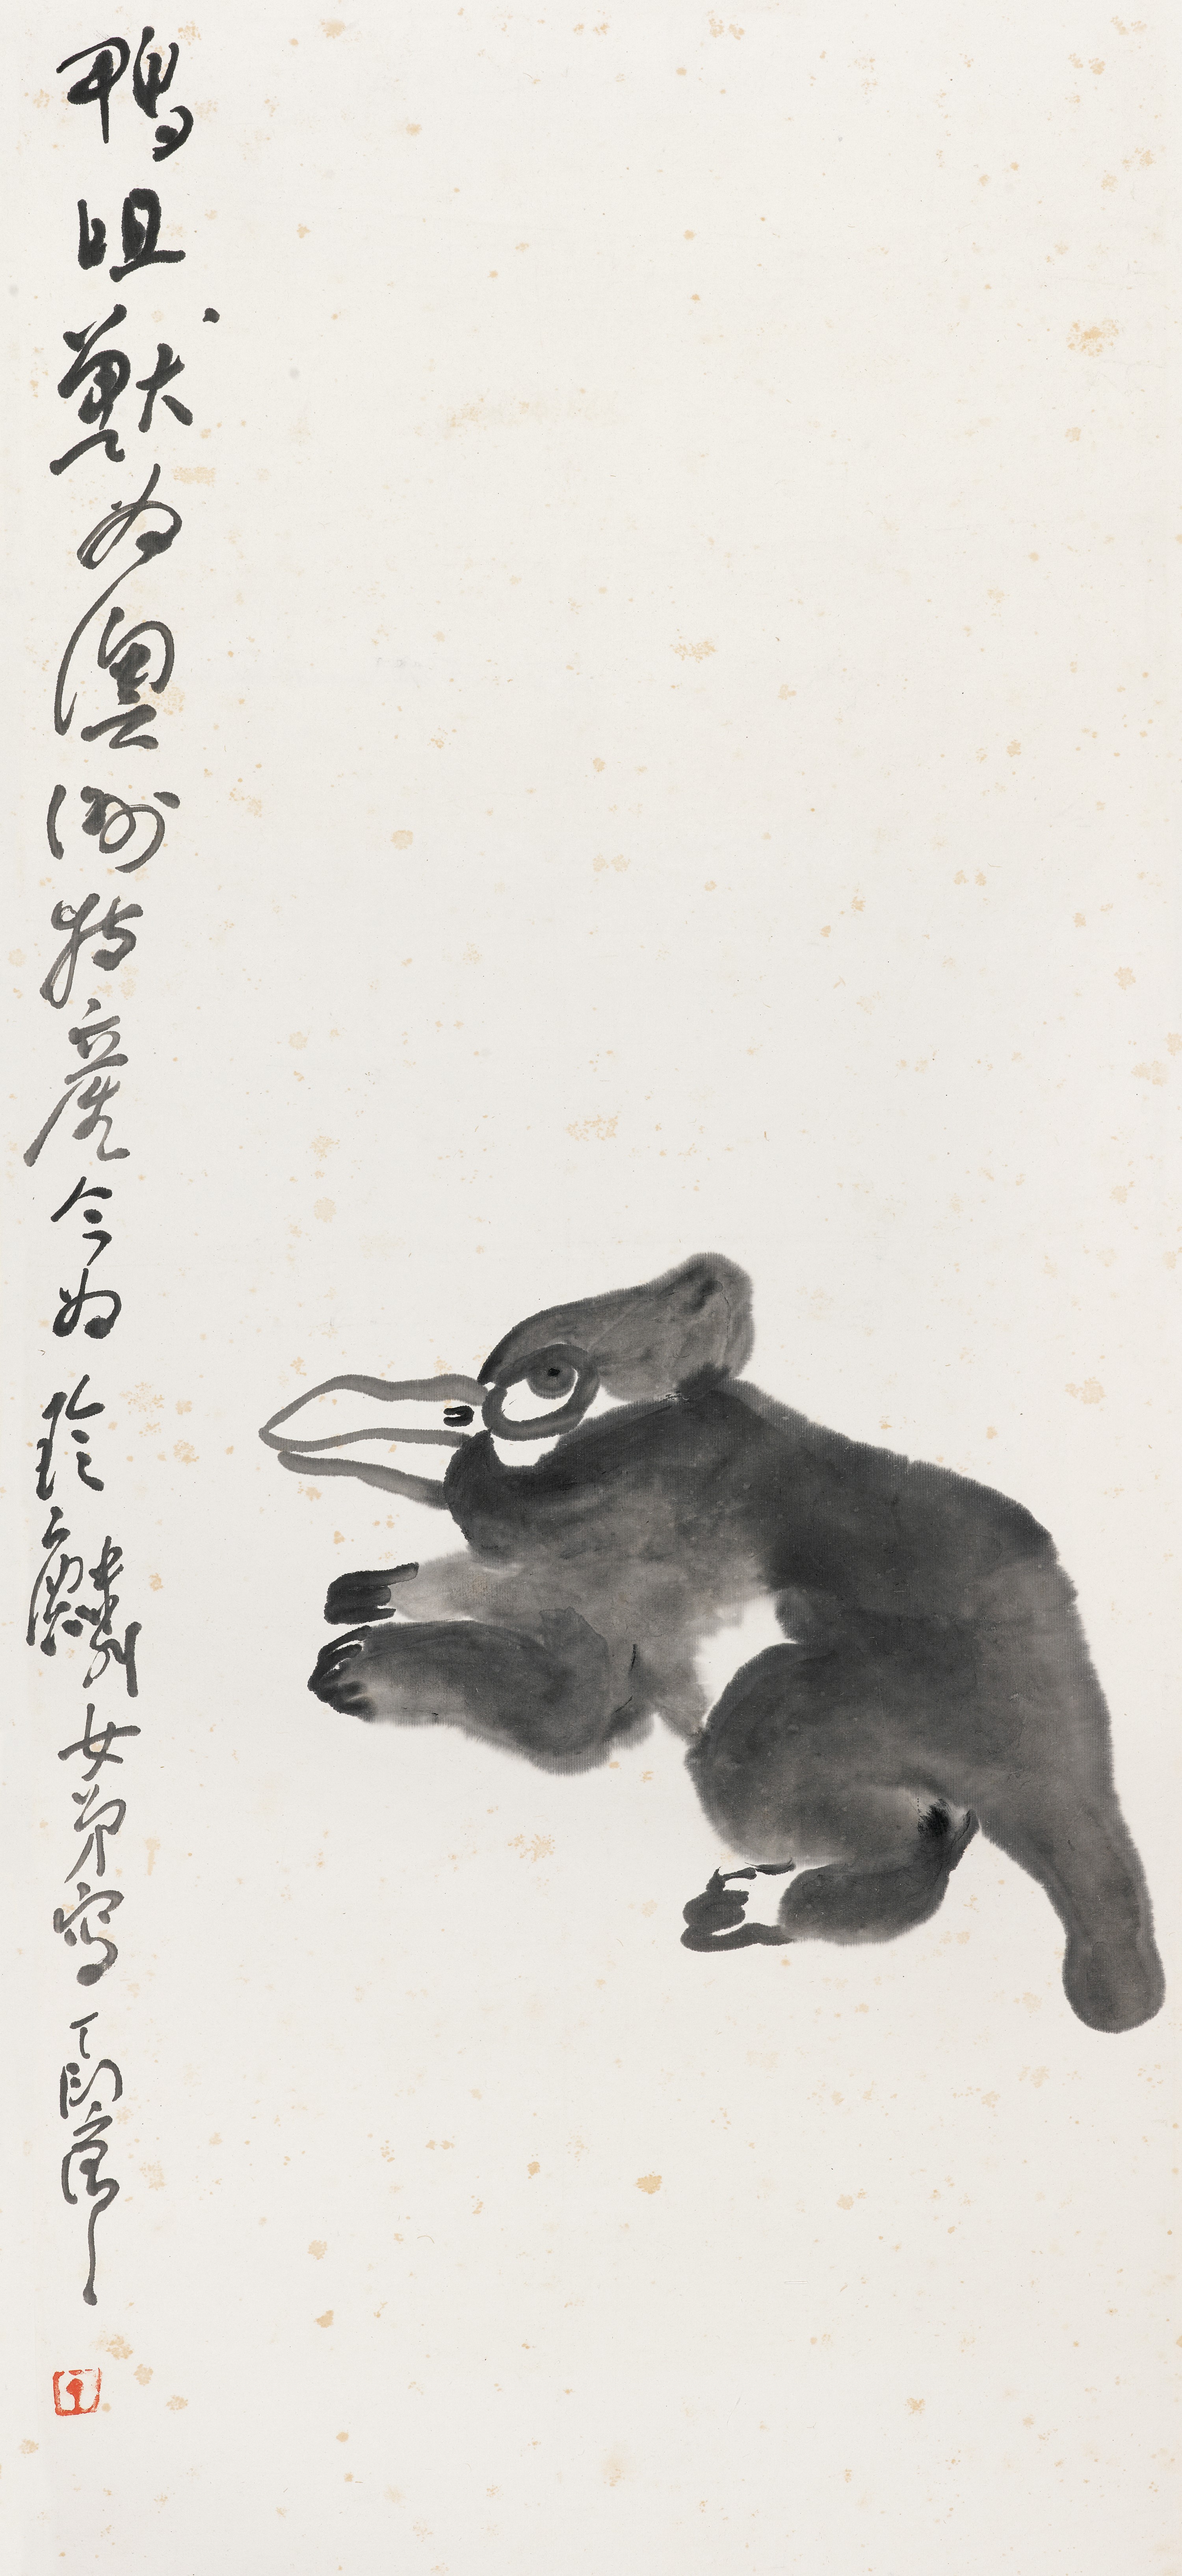 鴨咀獸為澳洲特產今為玲麟女弟寫丁衍庸